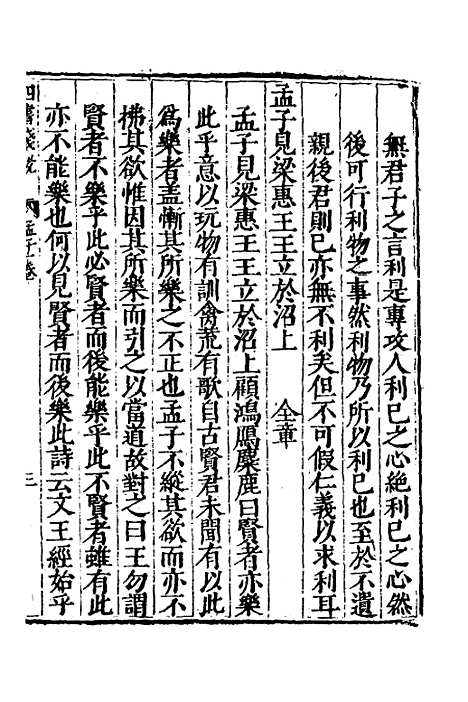 無君子之言利是專攻人利己之心絶利己之心然
後可行利物之事然利物乃所以利己也至於不遺
親後君則已亦無不利矣但不可假仁義以求利耳
孟子見梁惠王王立於沼上　全章
孟子見梁惠王王立於沼上顧鴻鴈麋鹿曰賢者亦樂
此乎意以玩物有訓禽荒有歌自古賢君未聞有以此
爲樂者盖慚其所樂之不正也孟子不縱其欲而亦不
拂其欲惟因其所樂而引之以當道故對之曰王勿謂
賢者不樂乎此必賢者而後能樂乎此不賢者雖有此
亦不能樂也何以見賢者而後樂此詩云文王經始乎
四書 孟子卷
三